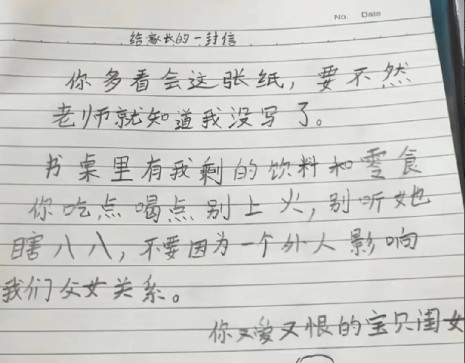 No. Date
给家长的一封信
你多看会这张纸，要不然
老师就知道我没写了。
书桌里有我剩的饮料和零食
你吃点喝点别上火，别听她
瞎八八，不要因为一个外人影响
我们父女关系。
你又爱又恨的宝贝闺女